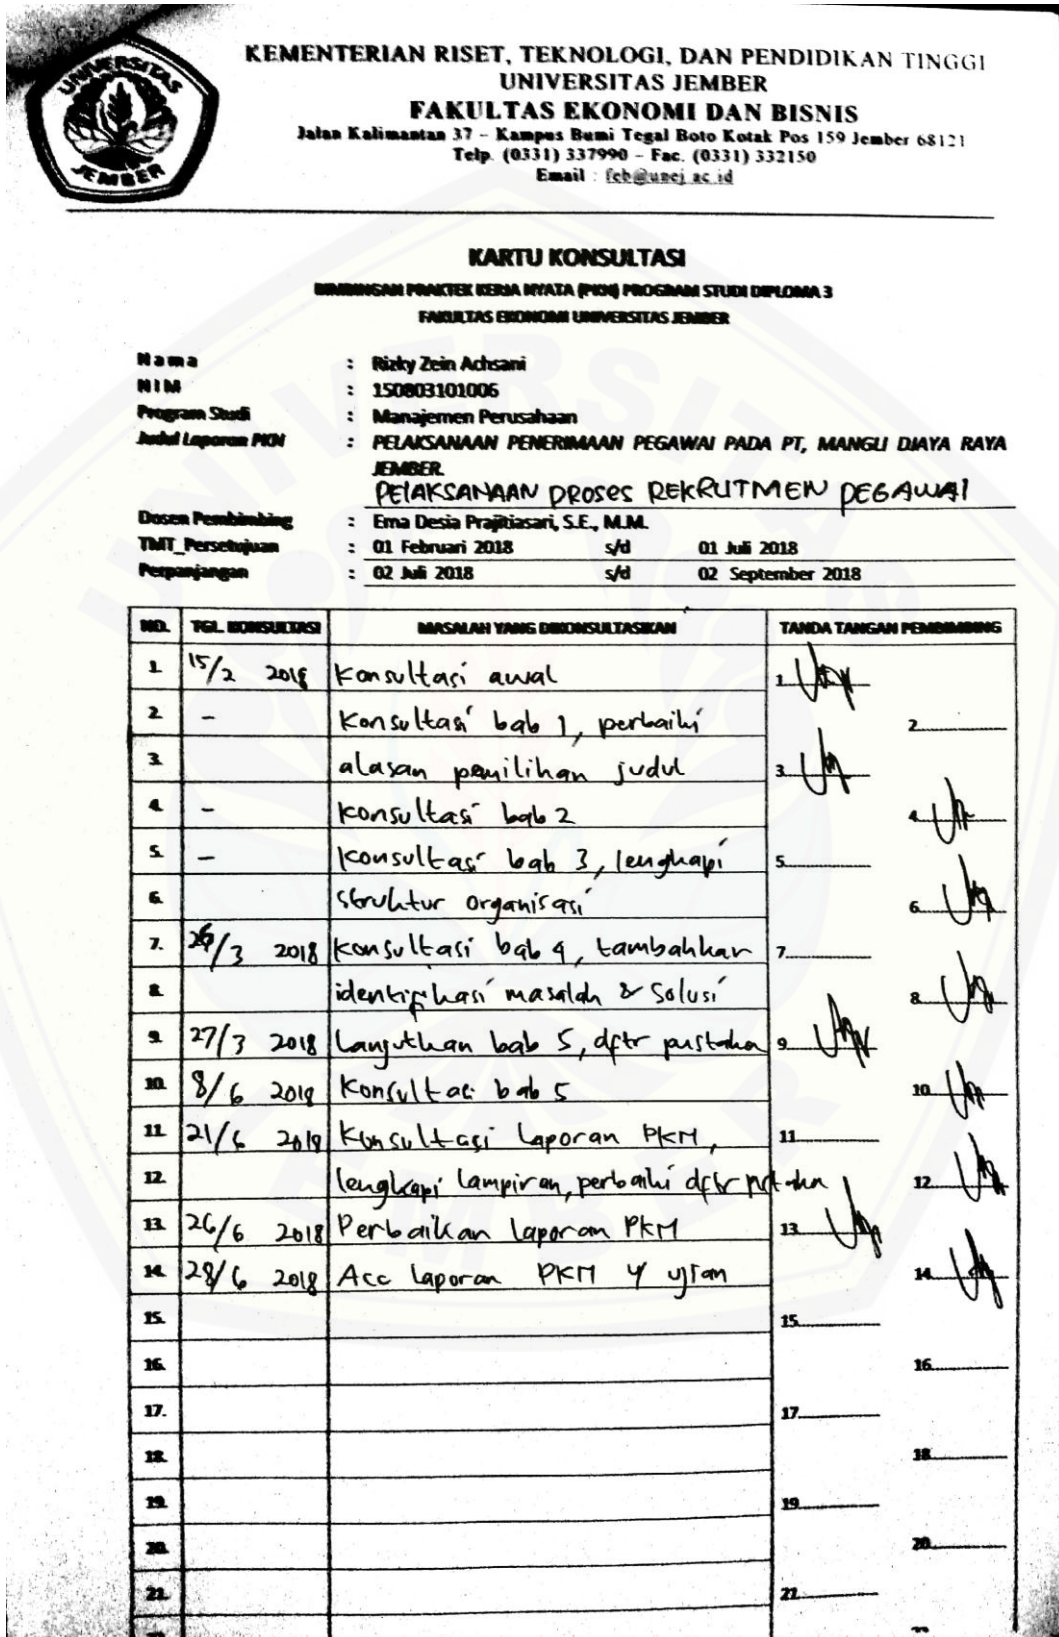 UNIVERSITAS
JEMBER
KEMENTERIAN RISET, TEKNOLOGI, DAN PENDIDIKAN TINGGI
UNIVERSITAS JEMBER
FAKULTAS EKONOMI DAN BISNIS
Jalan Kalimantan 37 – Kampus Bumi Tegal Boto Kotak Pos 159 Jember 68121
Telp. (0331) 337990 – Fac. (0331) 332150
Email : feb@unej.ac.id
KARTU KONSULTASI
BIMBINGAN PRAKTEK KERJA NYATA (PKN) PROGRAM STUDI DIPLOMA 3
FAKULTAS EKONOMI UNIVERSITAS JEMBER
Nama : Rizky Zein Achsani
NIM : 150803101006
Program Studi : Manajemen Perusahaan
Judul Laporan PKN : PELAKSANAAN PENERIMAAN PEGAWAI PADA PT, MANGLI DJAYA RAYA
JEMBER.
PELAKSANAAN PROSES REKRUTMEN PEGAWAI
Dosen Pembimbing : Ema Desia Prajitiasari, S.E., M.M.
TMT_Persetujuan : 01 Februari 2018 s/d 01 Juli 2018
Perpanjangan : 02 Juli 2018 s/d 02 September 2018
NO. TGL. KONSULTASI MASALAH YANG DIKONSULTASIKAN TANDA TANGAN PEMBIMBING
1. 15/2 2018 Konsultasi awal 1.
2. - Konsultasi bab 1, perbaiki 2.
3. alasan pemilihan judul 3.
4. - Konsultasi bab 2 4.
5. - Konsultasi bab 3, lengkapi 5.
6. struktur organisasi 6.
7. 26/3 2018 Konsultasi bab 4, tambahkan 7.
8. identifikasi masalah & solusi 8.
9. 27/3 2018 Lanjutkan bab 5, dftr pustaka 9.
10. 8/6 2018 Konsultasi bab 5 10.
11. 21/6 2018 Konsultasi laporan PKM, 11.
12. lengkapi lampiran, perbaiki dftr pustaka 12.
13. 26/6 2018 Perbaikan laporan PKM 13.
14. 28/6 2018 Acc laporan PKM y ujian 14.
15. 15.
16. 16.
17. 17.
18. 18.
19. 19.
20. 20.
21. 21.